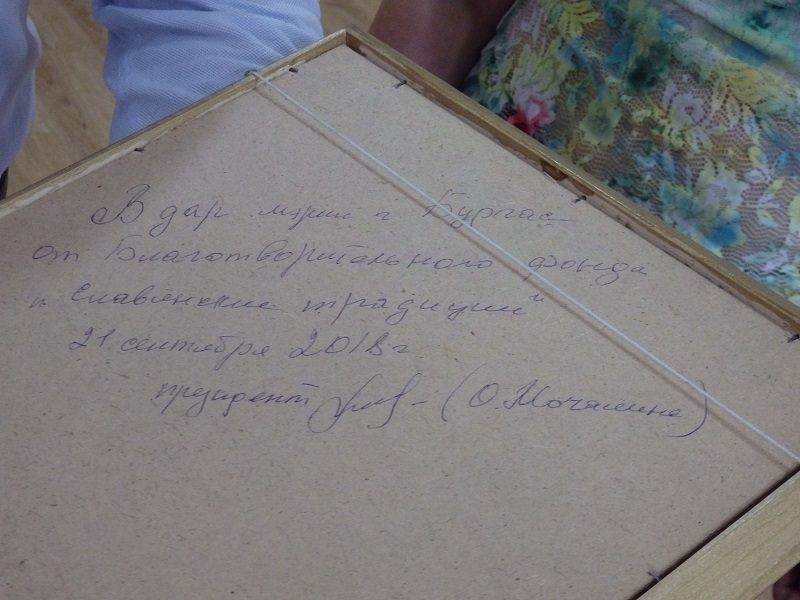 В дар мэрии г Бургас
от Благотворительного фонда
„Славянские традиции"
21 сентября 2018 г
президент (О. Мочалина)